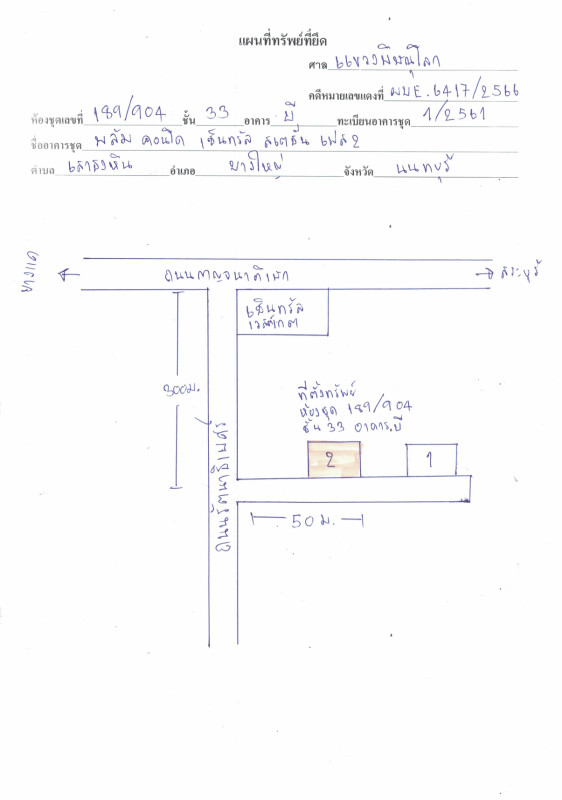 แผนที่ทรัพย์ที่ยึด
ศาล แขวงพิษณุโลก
คดีหมายเลขแดงที่ ผบE.6417/2566
ห้องชุดเลขที่ 189/904 ชั้น 33 อาคาร บี ทะเบียนอาคารชุด 1/2561
ชื่ออาคารชุด พลัม คอนโด เซ็นทรัล สเตชั่น เฟส2
ตำบล เสาธงหิน อำเภอ บางใหญ่ จังหวัด นนทบุรี
บางแค
ถนนกาญจนาภิเษก
สระบุรี
เซ็นทรัล
เวสต์เกต
300ม.
ที่ตั้งทรัพย์
ห้องชุด 189/904
ชั้น 33 อาคาร.บี
2
1
ถนนรัตนาธิเบศร์
50 ม.